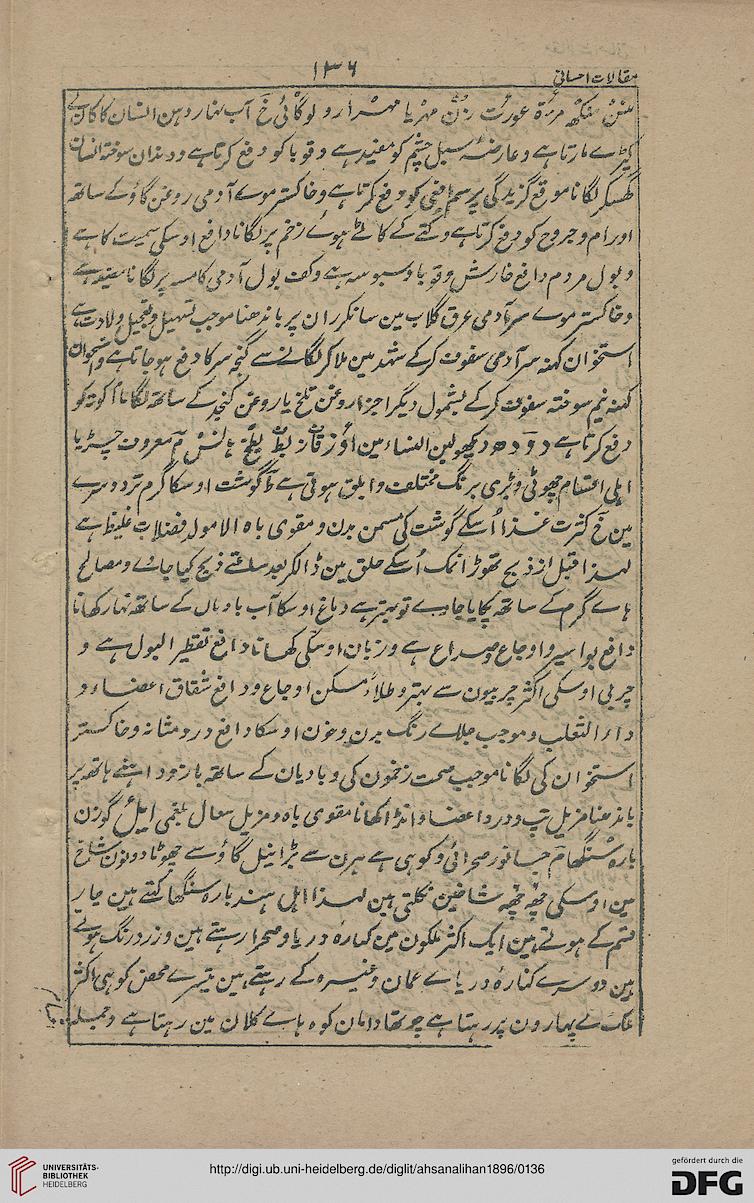 ۱۳۶
مقالات احسانی
منش مرءة عورت زن مہریا مہرارو لوگائی خ آب نہار دہن انسان کا کان کے
کیڑے مارتا ہے و عارضہ سبل چشم کو مفید ہے و قوبا کو دفع کرتا ہے و دندان سوختہ انسان
گھسکر لگانا موقع گزیدگی پر سم افعی کو دفع کرتا ہے و خاکستر موے آدمی روغن گاؤ کے ساتھ
اورام و جروح کو دفع کرتا ہے و کتے کے کاٹے ہوئے زخم پر لگانا دافع اوسکی سمیت کا ہے
و بول مردم دافع خارش و قوبا و سبوسہ ہے و کف بول آدمی کا مسہ پر لگانا مفید ہے
و خاکستر موے سر آدمی عرق گلاب مین سانکر ران پر باندھنا موجب تسہیل و تعجیل ولادت ہے
استخوان کہنہ سر آدمی سفوف کرکے شہد مین ملاکر لگانے سے گنج سر کا دفع ہوجاتا ہے و استخوان
کہنہ نیم سوختہ سفوف کرکے بشمول دیگر اجزا روغن تلخ یا روغن کنجد کے ساتھ لگانا آکوتہ کو
دفع کرتا ہے دودھ دیکھو لبن النساء مین اوز قاز بط بطخ ہانس م معروف چڑیا
اہلی اقسام چھوٹی و بڑی برنگ مختلف و ابلق ہوتی ہے ط گوشت اوسکا گرم تر دوسرے
مین خ کثرت غذا اُسکے گوشت کی مسمن بدن و مقوی باہ الا مولد فضلات غلیظ ہے
لہذا قبل از ذبح تھوڑا نمک اُسکے حلق مین ڈالکر بعد ساعتے ذبح کیا جائے و مصالح
ہاے گرم کے ساتھ پکایا جاوے تو بہتر ہے دماغ اوسکا آب بادیان کے ساتھ نہار کھانا
دافع بواسیر و اوجاع و صداع ہے و زبان اوسکی کھانا دافع تقطیر البول ہے و
چربی اوسکی اکثر چربیون سے بہتر و طلاءً مسکن اوجاع و دافع شقاق اعضاء و
داء الثعلب و موجب جلاے رنگ بدن و خون اوسکا دافع درد مثانہ و خاکستر
استخوان کی لگانا موجب صحت زخمون کی و بادیان کے ساتھ بازو داہنے ہاتھ پر
باندھنا مزیل تپ و درد اعضا و انڈا کھانا مقوی باہ و مزیل سعال بلغمی ایل گوزن
بارہ سنگھا م جانور صحرائی و کوہی ہے ہرن سے بڑا نیل گاؤ سے چھوٹا دونون شاخ
مین اوسکی چھ چھ شاخین نکلتی ہین لہذا اہل ہند بارہ سنگھا کہتے ہین چار
قسم کے ہوتے ہین ایک اکثر ملکون مین کنارہ دریا و صحرا رہتے ہین و زرد رنگ ہوتے
ہین دوسرے کنارہ دریاے عمان وغیرہ کے رہتے ہین تیسرے محض کوہی اکثر
پہاڑون پر رہتا ہے چوتھا دامان کوہ ہاے کلان مین رہتا ہے و جملہ
UNIVERSITÄTS-
BIBLIOTHEK
HEIDELBERG
http://digi.ub.uni-heidelberg.de/diglit/ahsanalihan1896/0136
gefördert durch die
DFG